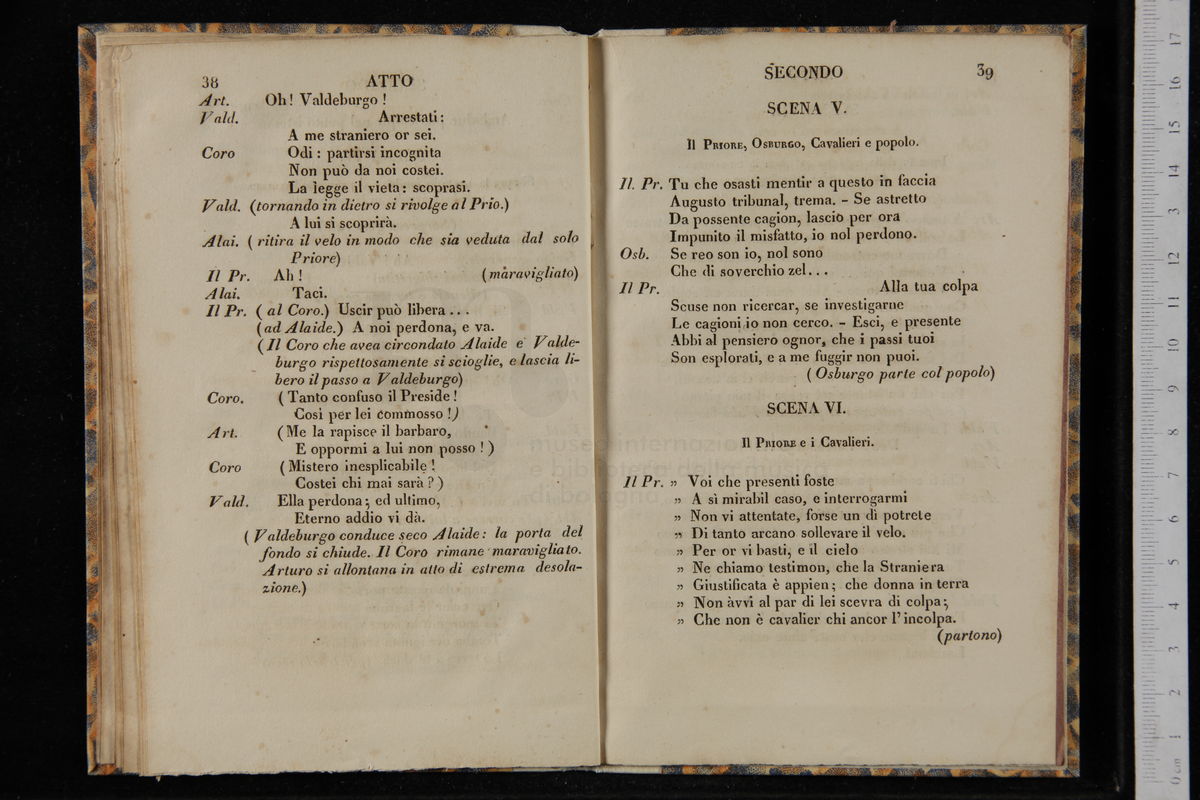 38
ATTO
Art. Oh! Valdeburgo!
Vald. Arrestati:
A me straniero or sei.
Coro Odi: partirsi incognita
Non può da noi costei.
La legge il vieta: scoprasi.
Vald. (tornando in dietro si rivolge al Prio.)
A lui si scoprirà.
Alai. (ritira il velo in modo che sia veduta dal solo
Priore)
Il Pr. Ah! (maravigliato)
Alai. Taci.
Il Pr. (al Coro.) Uscir può libera...
(ad Alaide.) A noi perdona, e va.
(Il Coro che avea circondato Alaide e Valde-
burgo rispettosamente si scioglie, e lascia li-
bero il passo a Valdeburgo)
Coro. (Tanto confuso il Preside!
Così per lei commosso!)
Art. (Me la rapisce il barbaro,
E oppormi a lui non posso!)
Coro (Mistero inesplicabile!
Costei chi mai sarà?)
Vald. Ella perdona; ed ultimo,
Eterno addio vi dà.
(Valdeburgo conduce seco Alaide: la porta del
fondo si chiude. Il Coro rimane maravigliato.
Arturo si allontana in atto di estrema desola-
zione.)
SECONDO
39
SCENA V.
Il Priore, Osburgo, Cavalieri e popolo.
Il. Pr. Tu che osasti mentir a questo in faccia
Augusto tribunal, trema. - Se astretto
Da possente cagion, lascio per ora
Impunito il misfatto, io nol perdono.
Osb. Se reo son io, nol sono
Che di soverchio zel...
Il Pr. Alla tua colpa
Scuse non ricercar, se investigarne
Le cagioni io non cerco. - Esci, e presente
Abbi al pensiero ognor, che i passi tuoi
Son esplorati, e a me fuggir non puoi.
(Osburgo parte col popolo)
SCENA VI.
Il Priore e i Cavalieri.
Il Pr. » Voi che presenti foste
» A sì mirabil caso, e interrogarmi
» Non vi attentate, forse un dì potrete
» Di tanto arcano sollevare il velo.
» Per or vi basti, e il cielo
» Ne chiamo testimon, che la Straniera
» Giustificata è appien; che donna in terra
» Non àvvi al par di lei scevra di colpa;
» Che non è cavalier chi ancor l'incolpa.
(partono)
museo internazionale
e biblioteca della musica
di bologna
0 cm 1 2 3 4 5 6 7 8 9 10 11 12 13 14 15 16 17